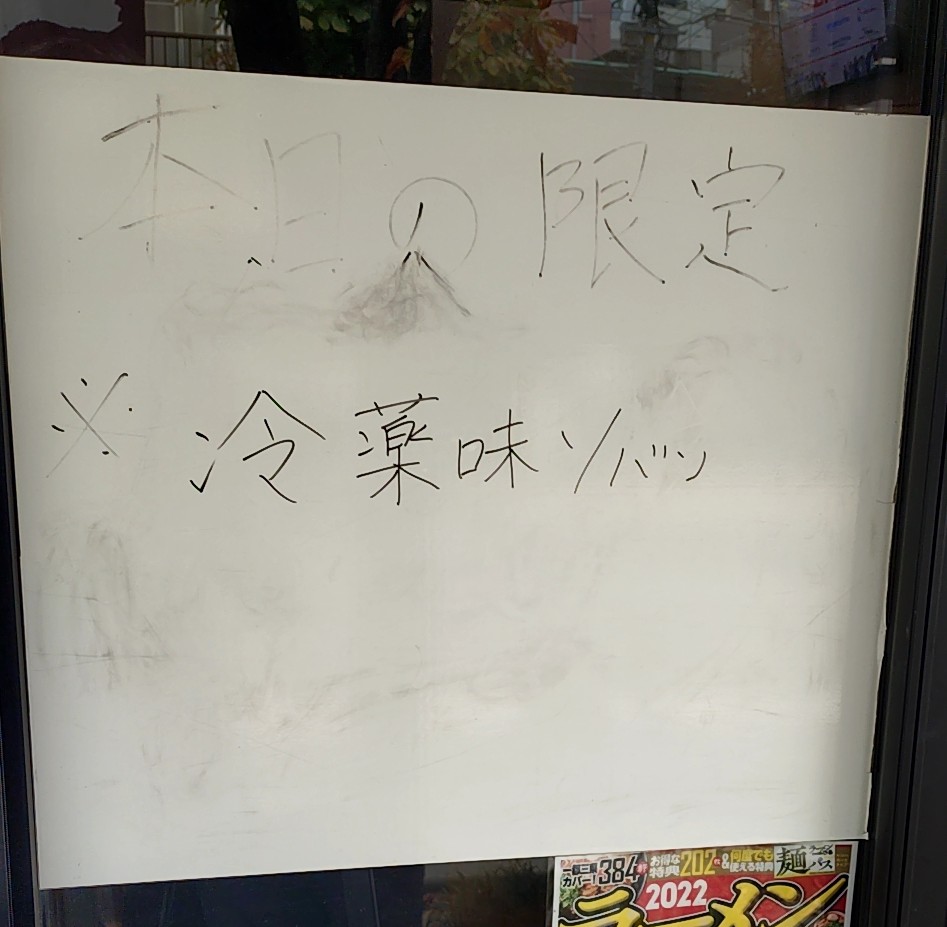 本日の限定
※ 冷薬味ソバッ
一都三県 カバー! 384軒
お得な特典202軒
&何度でも使える特典
麺パス
2022
ラーメン